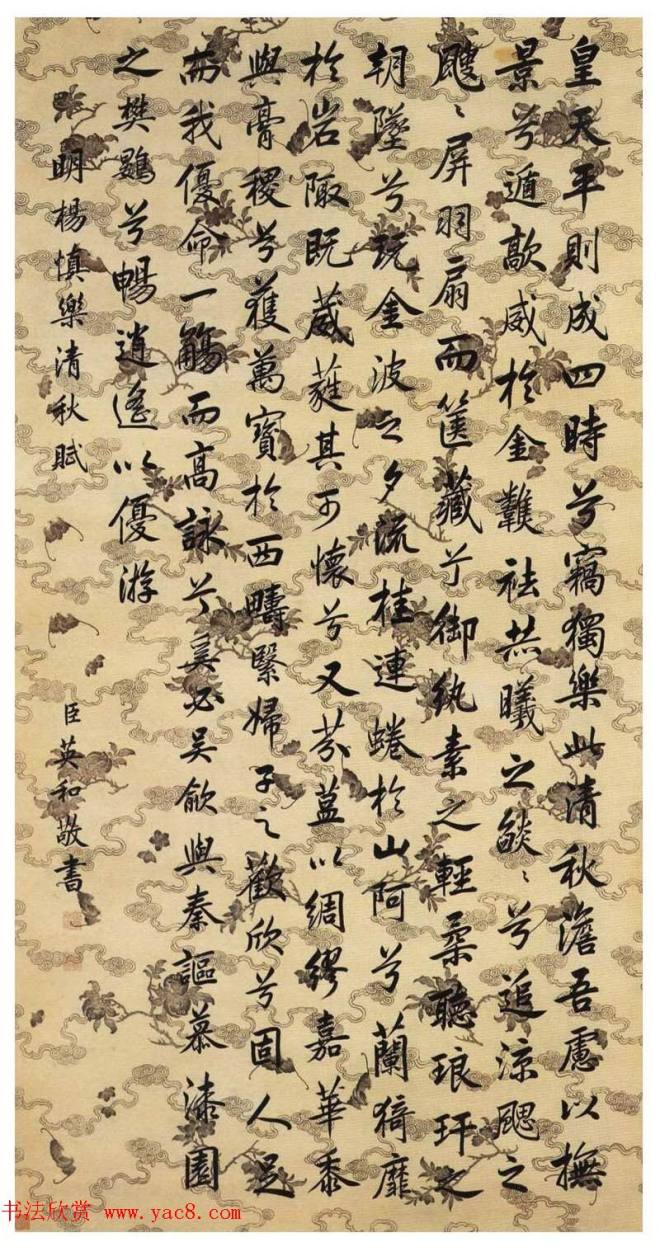 皇天平則成四時兮竊獨樂此清秋澹吾慮以撫
景兮遁歊威於金難祛恭曦之燄〻兮追涼颸之
颼〻屏羽扇而篋藏兮御紈素之輕柔聽琅玕之
朝墜兮玩金波之夕流桂連蜷於山阿兮蘭猗靡
於岩陬既葳蕤其可懷兮又芬蒀以綢繆嘉華黍
與膏稷兮獲萬寶於西疇緊婦子之歡欣兮固人足
而我優命一觴而高詠兮奚必吴歈與秦謳慕漆園
之樊鷃兮暢逍遙以優游
明楊慎樂清秋賦
臣英和敬書
书法欣赏 www.yac8.com